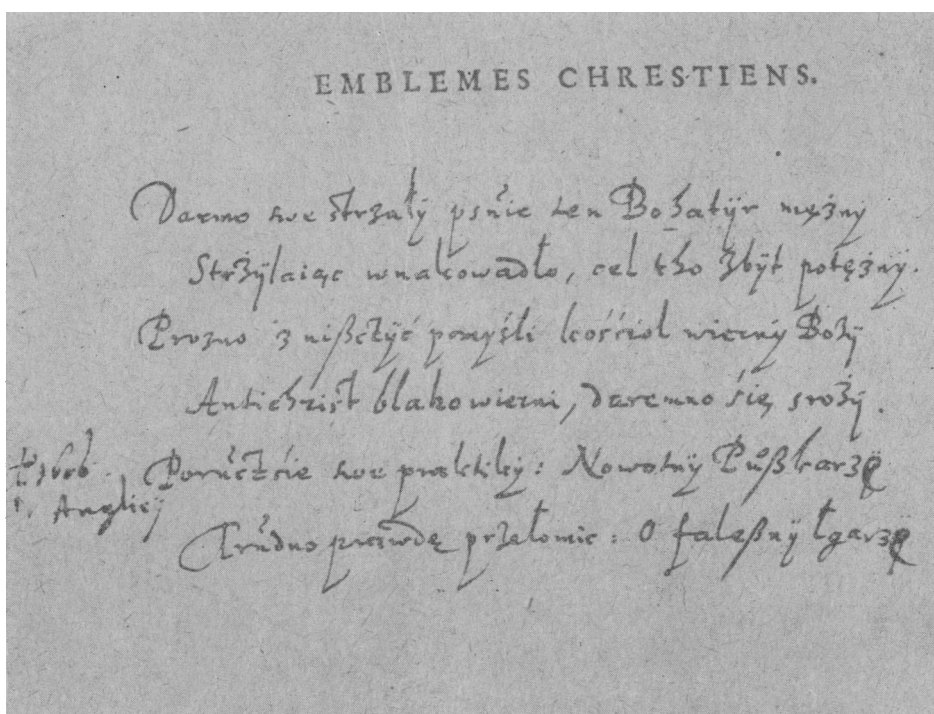 EMBLEMES CHRESTIENS.
Darmo swe strzały psuie ten Bohatyr mężny
Strżylaiąc wnakowadło, cel tho zbyt potężny.
Prozno zniszczyć pomyśli kościol wierny Boży
Antichrist blahowierni, daremno się sroży.
Poruczcie swe praktiki: Nowotny Puszkarze
Anglii
Trudno prawdę przełomic: O faleszny łgarze